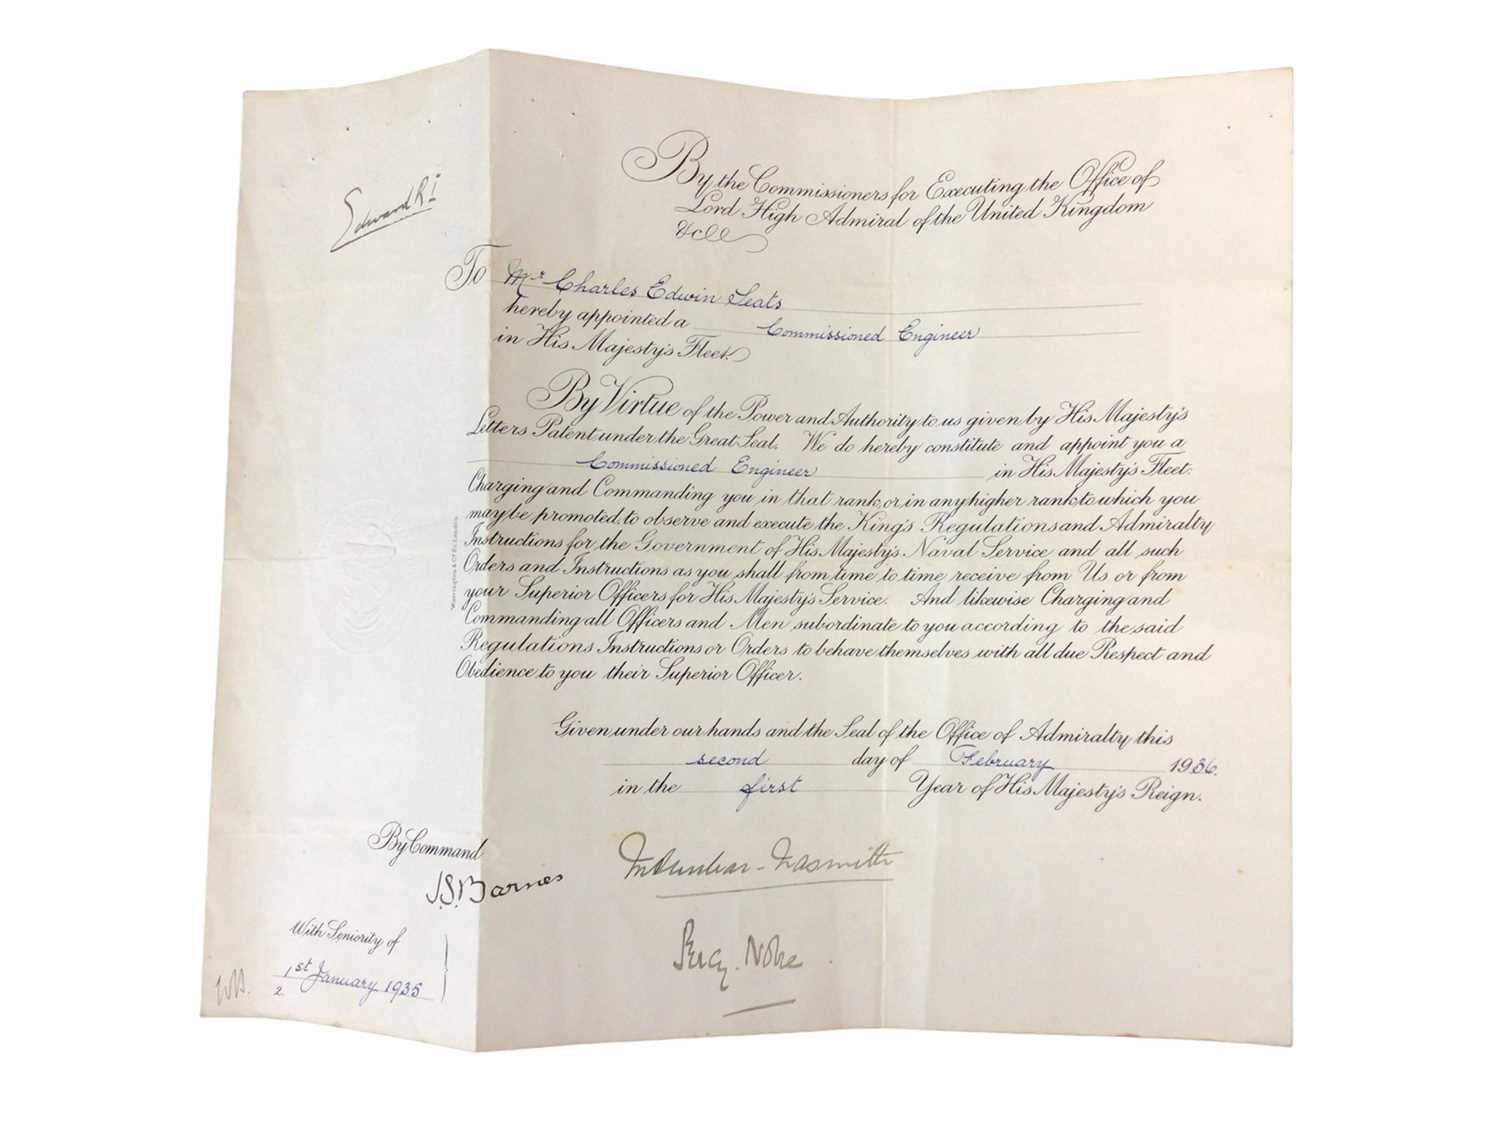 Edward R.I.
By the Commissioners for Executing the Office of
Lord High Admiral of the United Kingdom
&c
To Mr Charles Edwin Seats
hereby appointed a Commissioned Engineer
in His Majesty's Fleet.
By Virtue of the Power and Authority to us given by His Majesty's
Letters Patent under the Great Seal. We do hereby constitute and appoint you a
Commissioned Engineer in His Majesty's Fleet.
Charging and Commanding you in that rank, or in any higher rank to which you
may be promoted, to observe and execute the King's Regulations and Admiralty
Instructions for the Government of His Majesty's Naval Service and all such
Orders and Instructions as you shall from time to time receive from Us or from
your Superior Officers for His Majesty's Service. And likewise Charging and
Commanding all Officers and Men subordinate to you according to the said
Regulations Instructions or Orders to behave themselves with all due Respect and
Obedience to you their Superior Officer.
Given under our hands and the Seal of the Office of Admiralty this
second day of February 1936.
in the first Year of His Majesty's Reign.
By Command
J.S. Barnes
M Dunbar-Nasmith
Percy Noble
With Seniority of
1st January 1935
2